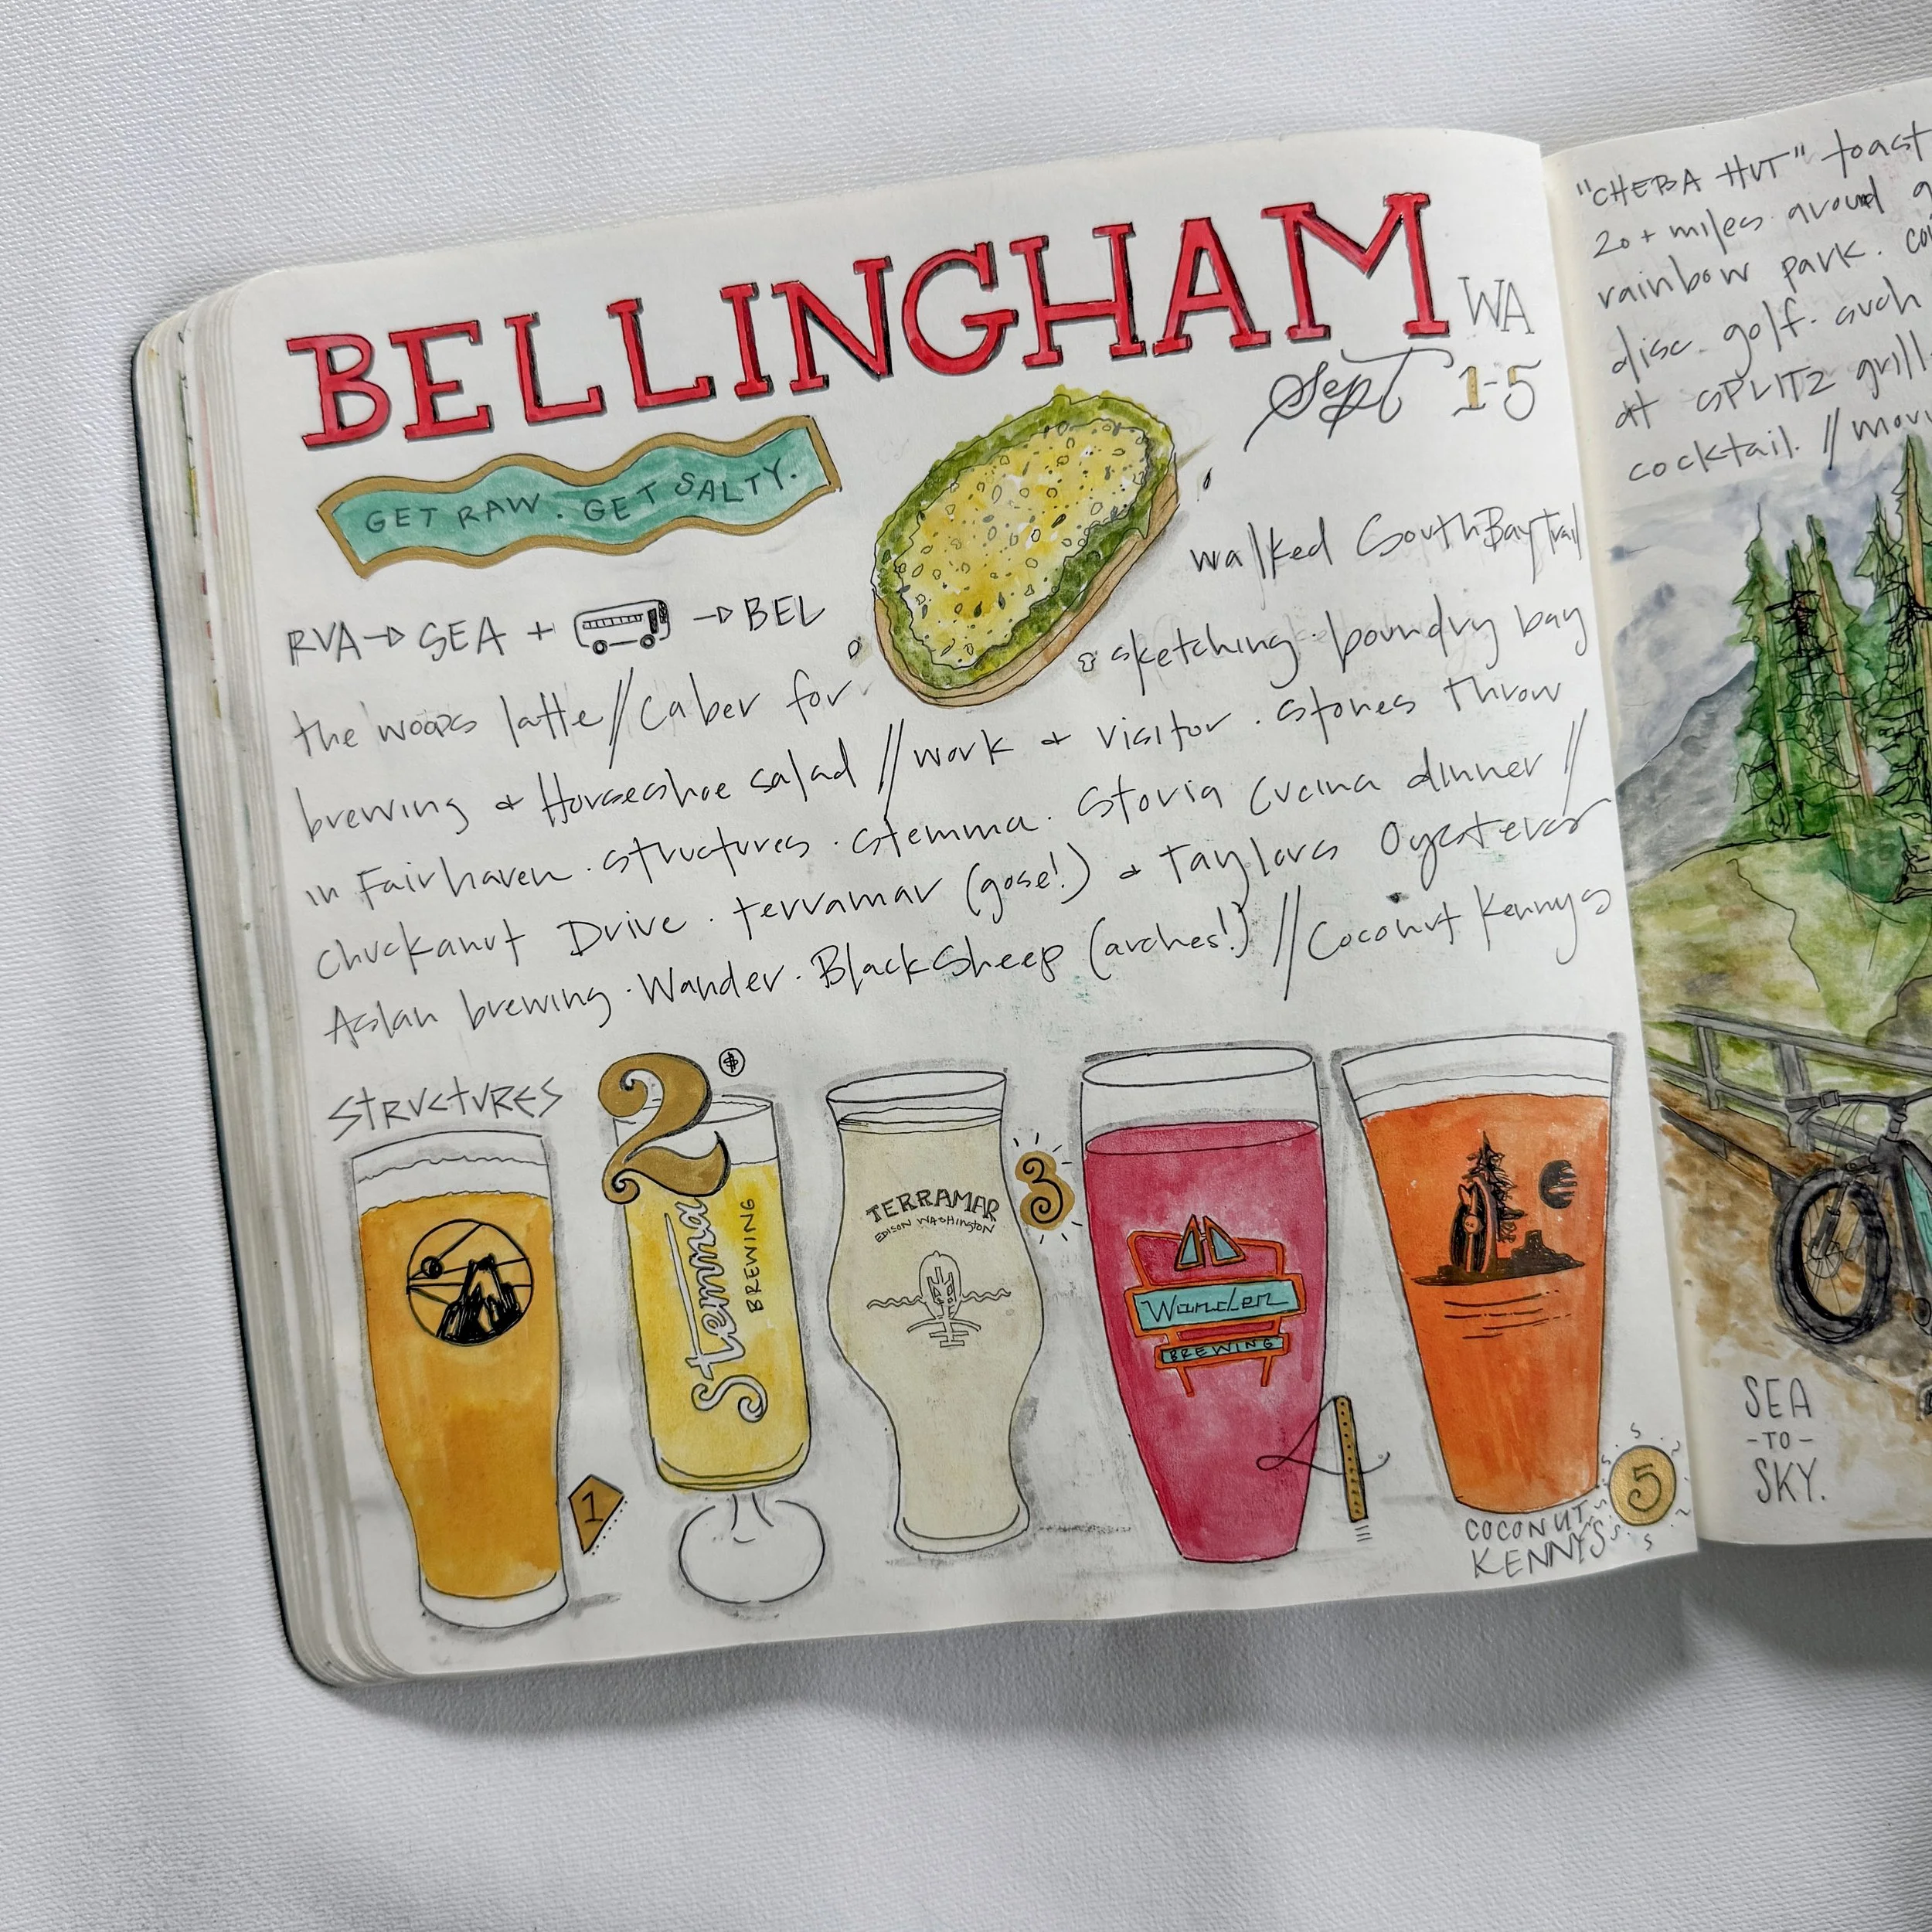 BELLINGHAM WA
Sept 1-5
GET RAW. GET SALTY.
walked South Bay Trail
RVA→ SEA + → BEL
the woods latte // Caber for sketching. boundry bay
brewing & Horseshoe salad // work & visitor. stones throw
in Fairhaven. structures. stemma. Storia Cucina dinner //
Chuckanut Drive. terramar (gose!) & Taylors Oysters
Aslan brewing. Wander. Black Sheep (arches!) // Coconut Kennys
STRUCTURES
1
2
Stemma
BREWING
TERRAMAR
EDISON WASHINGTON
3
Wander
BREWING
4
COCONUT
KENNYS
5
"CHEBA HUT" toast
20+ miles around
rainbow park.
disc golf. such
at SPLITZ grill
cocktail. //
SEA
-TO-
SKY.